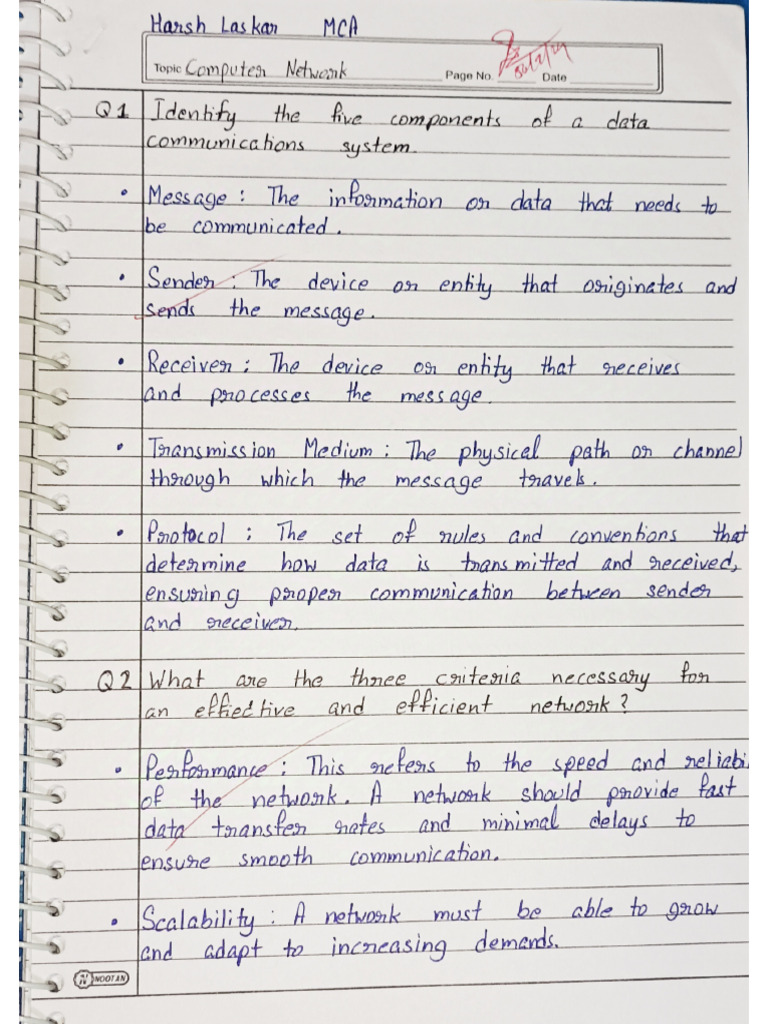 Harsh Laskar MCA
Topic Computer Network Page No. Date
Q1 Identify the five components of a data
communications system.
• Message : The information or data that needs to
be communicated.
• Sender : The device or entity that originates and
sends the message.
• Receiver : The device or entity that receives
and processes the message.
• Transmission Medium : The physical path or channel
through which the message travels.
• Protocol : The set of rules and conventions that
determine how data is transmitted and received,
ensuring proper communication between sender
and receiver.
Q2 What are the three criteria necessary for
an effective and efficient network?
• Performance : This refers to the speed and reliabi
of the network. A network should provide fast
data transfer rates and minimal delays to
ensure smooth communication.
• Scalability : A network must be able to grow
and adapt to increasing demands.
NOOTAN